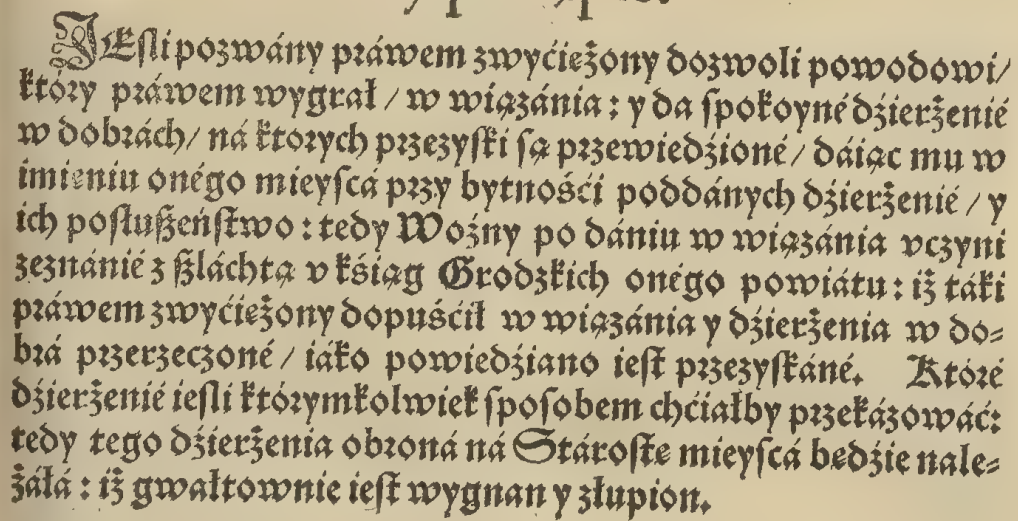 JEſli pozwány práwem zwyćiężony dozwoli powodowi/
który práwem wygrał / w wiązánia : y da ſpokoyné dźierżenié
w dobrách/ ná ktorych przezyſki ſą przewiedźioné / dáiąc mu w
imieniu onégo mieyſcá przy bytnośći poddánych dźierżenié / y
ich poſłußeńſtwo : tedy Woźny po dániu w wiązánia vczyni
zeznánié z ßláchtą v kśiąg Grodzkich onégo powiátu : iż táki
práwem zwyćiężony dopuśćił w wiązánia y dźierżenia w do⸗
brá przerzeczoné / iáko powiedźiano ieſt przezyſkáné. Któré
dźierżenié ieſli którymkolwiek ſpoſobem chćiałby przekázowáć:
tedy tego dźierżenia obroná ná Stároſtę mieyſcá będźie nale⸗
żáłá : iż gwałtownie ieſt wygnan y złupion.